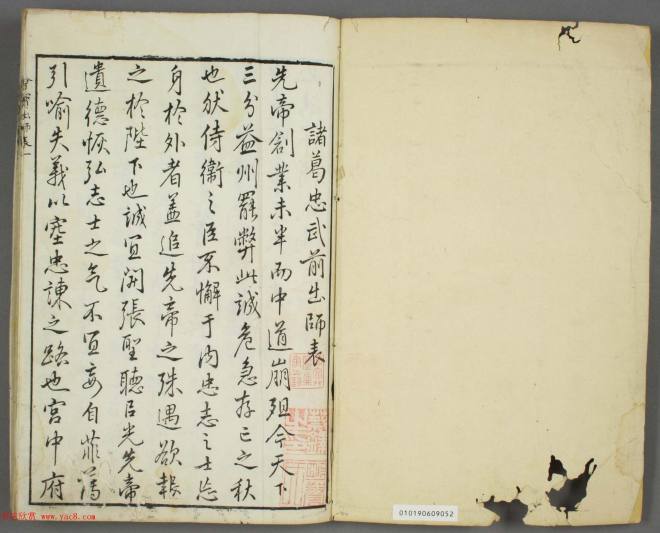 諸葛忠武前出師表
先帝創業未半而中道崩殂今天下
三分益州罷弊此誠危急存亡之秋
也然侍衛之臣不懈于内忠志之士忘
身於外者蓋追先帝之殊遇欲報
之於陛下也誠宜開張聖聽以光先帝
遺德恢弘志士之气不宜妄自菲薄
引喻失義以塞忠諫之路也宮中府
010190609052
www.yac8.com